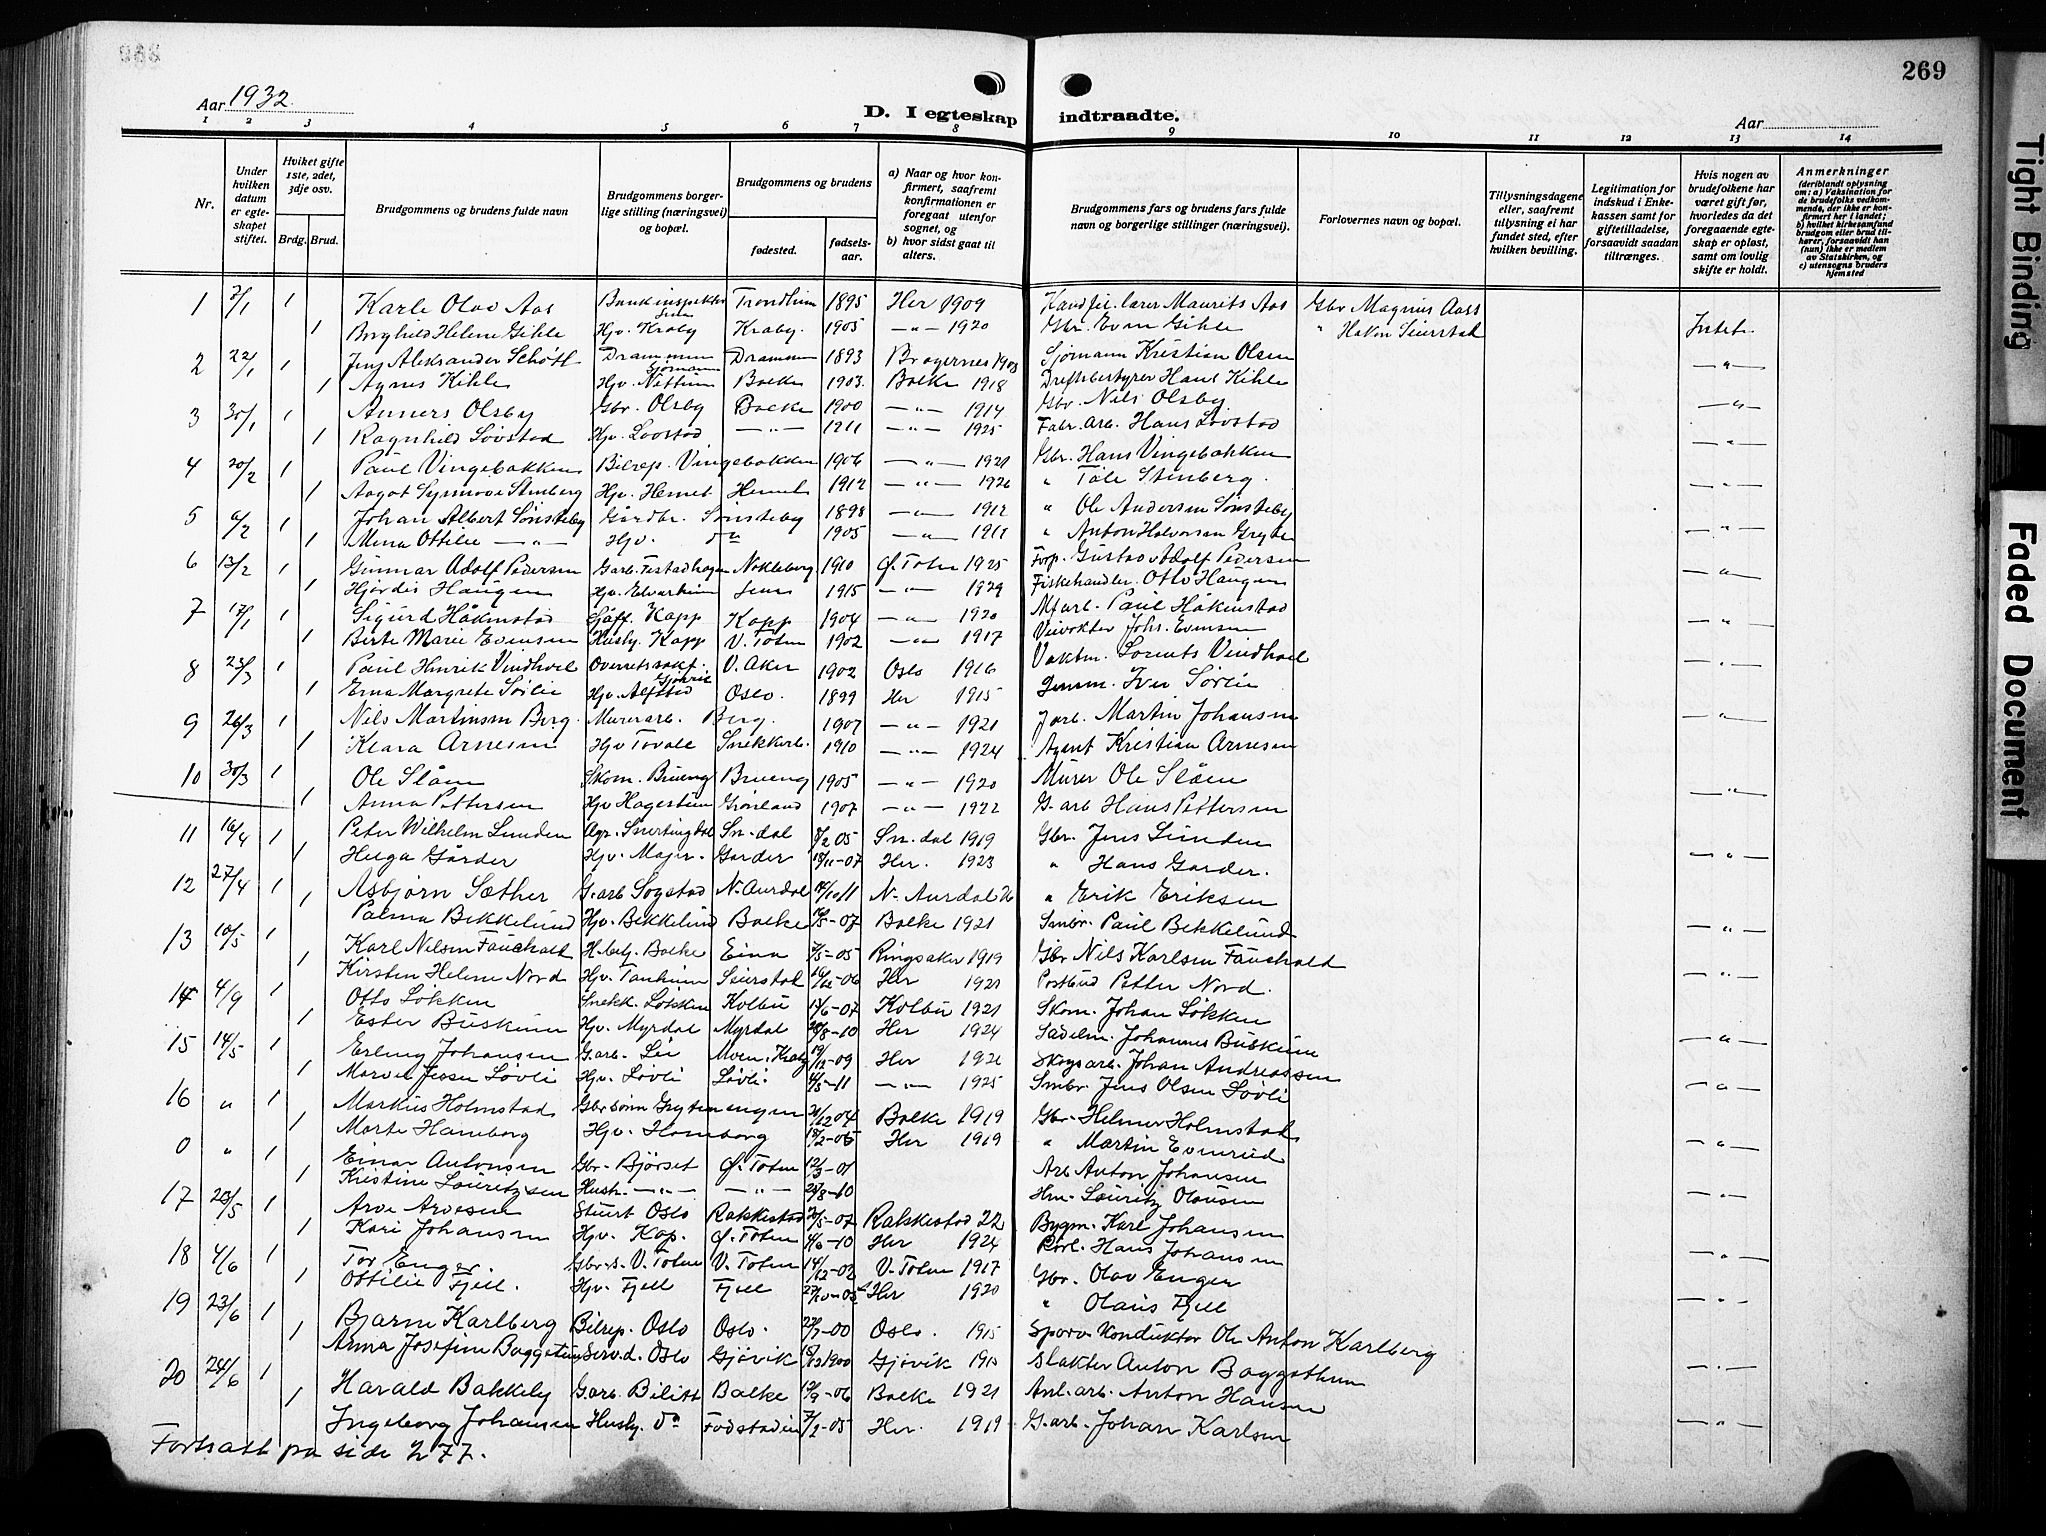 269
Aar 1932.
D. I egteskap indtraadte.
Aar
1 2 3 4 5 6 7 8 9 10 11 12 13 14
Nr.
Under hvilken datum er egteskapet stiftet.
Hvilket gifte 1ste, 2det, 3dje osv.
Brdg. Brud.
Brudgommens og brudens fulde navn
Brudgommens borgerlige stilling (næringsvei) og bopæl.
Brudgommens og brudens
fødested.
fødselsaar.
a) Naar og hvor konfirmert, saafremt konfirmationen er foregaat utenfor sognet, og
b) hvor sidst gaat til alters.
Brudgommens fars og brudens fars fulde navn og borgerlige stillinger (næringsvei).
Forlovernes navn og bopæl.
Tillysningsdagene eller, saafremt tillysning ei har fundet sted, efter hvilken bevilling.
Legitimation for indskud i Enkekassen samt for giftetilladelse, forsaavidt saadan tiltrænges.
Hvis nogen av brudefolkene har været gift før, hvorledes da det foregaaende egteskap er opløst, samt om lovlig skifte er holdt.
Anmerkninger
(deriblandt oplysning om: a) Vaksination for de brudefolks vedkommende, der ikke er konfirmert her i landet; b) hvilket kirkesamfund brudgom eller brud tilhører, forsaavidt han (hun) ikke er medlem av Statskirken, og c) utensogns bruders hjemsted
1 Karle Olav Aas Bankinspektør Trondhim 1895 Her 1909 Maurits Aas Gbr Magnus Aass
Borghild Helene Gihle Hjv. Kraby Kraby. 1905 — „ — 1920 Gbr. Even Gihle „ Håkon Seierstad Intet.
2 22/1 1 Jens Aleksander Schøtt Drammen Sjømann Drammen 1893 Bragernes 1903 Sjømann Kristian Olsen
1 Agnes Kihle Hjv. Balke 1903. Balke 1918 Driftsbestyrer Hans Kihle — „ —
3 30/1 1 Anners Olsby Gbr. Olsby Balke 1900 — „ — 1914 Gbr. Nils Olsby
1 Ragnhild Løvstad Hjv. Lovstad — „ — 1911 — „ — 1925 Fabr. arb. Hans Løvstad — „ —
4 20/2 1 Paul Vingebakken Bilrep. Vingebakken 1906 — „ — 1921 Gbr. Hans Vingebakken
1 Aagot Synnøve Stenberg Hjv. Hemet 1912 — „ — 1926 „ Tole Stenberg. — „ —
5 6/2 1 Johan Albert Sønsteby Gårdbr. Sønsteby 1898 — „ — 1912 „ Ole Andersen Sønsteby
1 Mina Ottilie — „ — Hjv. do 1905 — „ — 1911 „ Anton Halvorsen — „ —
6 13/2 1 Gunnar Adolf Pedersen Garb. Nøkleberg 1910 Ø. Toten 1925 Forp. Gustav Adolf Pedersen
1 Hjørdis Haugen Hjv. 1915 — „ — 1929 Fiskehandler Otto Haugen — „ —
7 17/1 1 Sigurd Håkenstad Sjåff. Kapp Kapp 1904 — „ — 1920 Paul Håkenstad
1 Berte Marie Evensen Husby. Kapp V. Toten 1902 — „ — 1917 Veivokter Johs. Evensen — „ —
8 23/3 1 Paul Henrik Vindhoel Overretssakf. Gjøvik V. Aker 1902 Oslo 1916 Vaktm. Lorents Vindhoel
1 Erna Margrete Sølie Hjv. Alfstad Oslo. 1899 Her 1915 Iver Sørlie — „ —
9 26/3 1 Nils Martinsen Berg. Murerarb. Berg. 1907 — „ — 1921 Jarb. Martin Johansen
1 Klara Arnesen Hjv. Snekkerb. 1910 — „ — 1924 Agent Kristian Arnesen — „ —
10 30/3 1 Ole Slåen Skom. Brueng Brueng 1905 — „ — 1920 Murer Ole Slåen
1 Anna Pettersen Hjv. Hagestuen Grønland 1907 — „ — 1922 G. arb Hans Pettersen — „ —
11 16/4 1 Peter Wilhelm Lunden Agr. Snertingdal Sn.-dal 05 Sn.-dal 1919 Gbr. Jens Lunden
1 Helga Gårder Hjv. Majer- Garder 18/11-07 Her. 1923 „ Hans Garder. — „ —
12 27/4 1 Asbjørn Sæther G. arb Sogstad N. Aurdal 11 N. Aurdal 26 „ Erik Eriksen
1 Palma Bekkelund Hjv. Bekkelund Balke 07 Balke 1921 Smbr. Paul Bekkelund — „ —
13 10/5 1 Karl Nilsen Fauskald H.best. Balke Eina 05 Ringsaker 1919 Gbr Nils Karlsen Fauskald
1 Kirsten Helene Nord Hjv. Tanheim Seierstad 06 Her 1921 Postbud Petter Nord. — „ —
14 4/9 1 Otto Løkken Snekk. Løkken Kolbu 07 Kolbu 1921 Skom. Johan Løkken
1 Ester Buskum Hjv. Myrdal Myrdal 28/8-10 Her 1924 Sadelm. Johannes Buskum — „ —
15 14/5 1 Erling Johansen G. arb. Lie 19/12-09 Her 1926 Skogsarb. Johan Andreassen
1 Løvli Hjv. Løvli Løvli. 11 — „ — 1925 Smbr. Jens Olsen Løvli — „ —
16 „ 1 Markus Holmstad Gbr sønn Grytenengen 04 Balke 1919 Gbr. Helmer Holmstad
1 Marte Hamborg Hjv. Hamborg 18/2-05 Her 1919 „ Martin Evenrud — „ —
0 „ 1 Einar Antonsen Gbr. Bjørset Ø. Toten 12/3-01 Arb. Anton Johansen
1 Kristine Lauritzsen Hush. — „ — — „ — 28/8-10 Hm. Lauritz Olausen — „ —
17 23/5 1 Arve Arvesen Stuert Oslo Rakkestad 07 Rakkestad 22 Bygm. Karl Johansen
1 Kari Johansen Hjv. Kap. Ø. Toten 4/6-10 Her 1924 Rørl. Hans Johansen — „ —
18 4/6 1 Tor Enger. Gbr. s. V. Toten V. Toten 14/12-02 V. Toten 1917 Gbr. Olav Enger
1 Ottilie Fjell. Hjv. Fjell Fjell 27/10-05 Her 1920 „ Olaus Fjell — „ —
19 23/6 1 Bjarne Karlberg Bilrep. Oslo Oslo. 00 Oslo. 1915 Sporv. Konduktør Ole Anton Karlberg
1 Anna Josefine Baggetun Serv.d. Oslo Gjøvik 1900 Gjøvik 1915 Slakter Anton Baggethun — „ —
20 24/6 1 Harald Bakkely G. arb. Bilitt Balke 06 Balke 1921 Anl. arb. Anton Hansen
1 Ingeborg Johansen Husby. do Fodstadeie 05 Her. 1919 G. arb. Johan Karlsen — „ —
Fortsatt på side 277.
Tight Binding
Faded Document